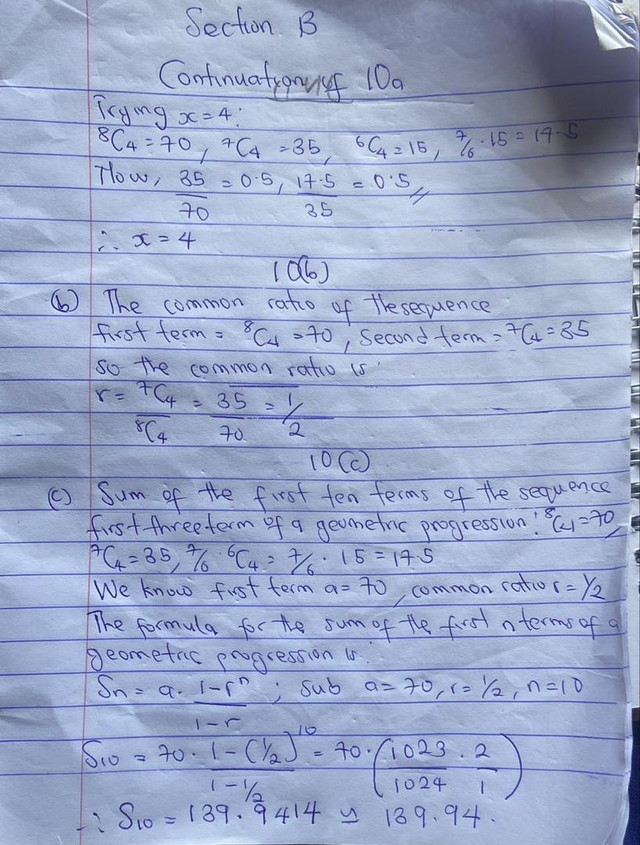 Section B
Continuation of 10a
Trying x=4:
⁸C₄ = 70, ⁷C₄ = 35, ⁶C₄ = 15, 7/6 · 15 = 17.5
Now, 35/70 = 0.5, 17.5/35 = 0.5 //
∴ x = 4
10(b)
(b) The common ratio of the sequence
first term = ⁸C₄ = 70, Second term = ⁷C₄ = 35
so the common ratio is:
r = ⁷C₄/⁸C₄ = 35/70 = 1/2
10(c)
(c) Sum of the first ten terms of the sequence
first three term of a geometric progression: ⁸C₄ = 70,
⁷C₄ = 35, 7/6 · ⁶C₄ = 7/6 · 15 = 17.5
We know first term a = 70, common ratio r = 1/2
The formula for the sum of the first n terms of a
geometric progression is:
Sn = a · (1-rⁿ)/(1-r) ; sub a = 70, r = 1/2, n = 10
S₁₀ = 70 · (1-(1/2)¹⁰)/(1-1/2) = 70 · (1023/1024 · 2/1)
∴ S₁₀ = 139.9414 ≃ 139.94.